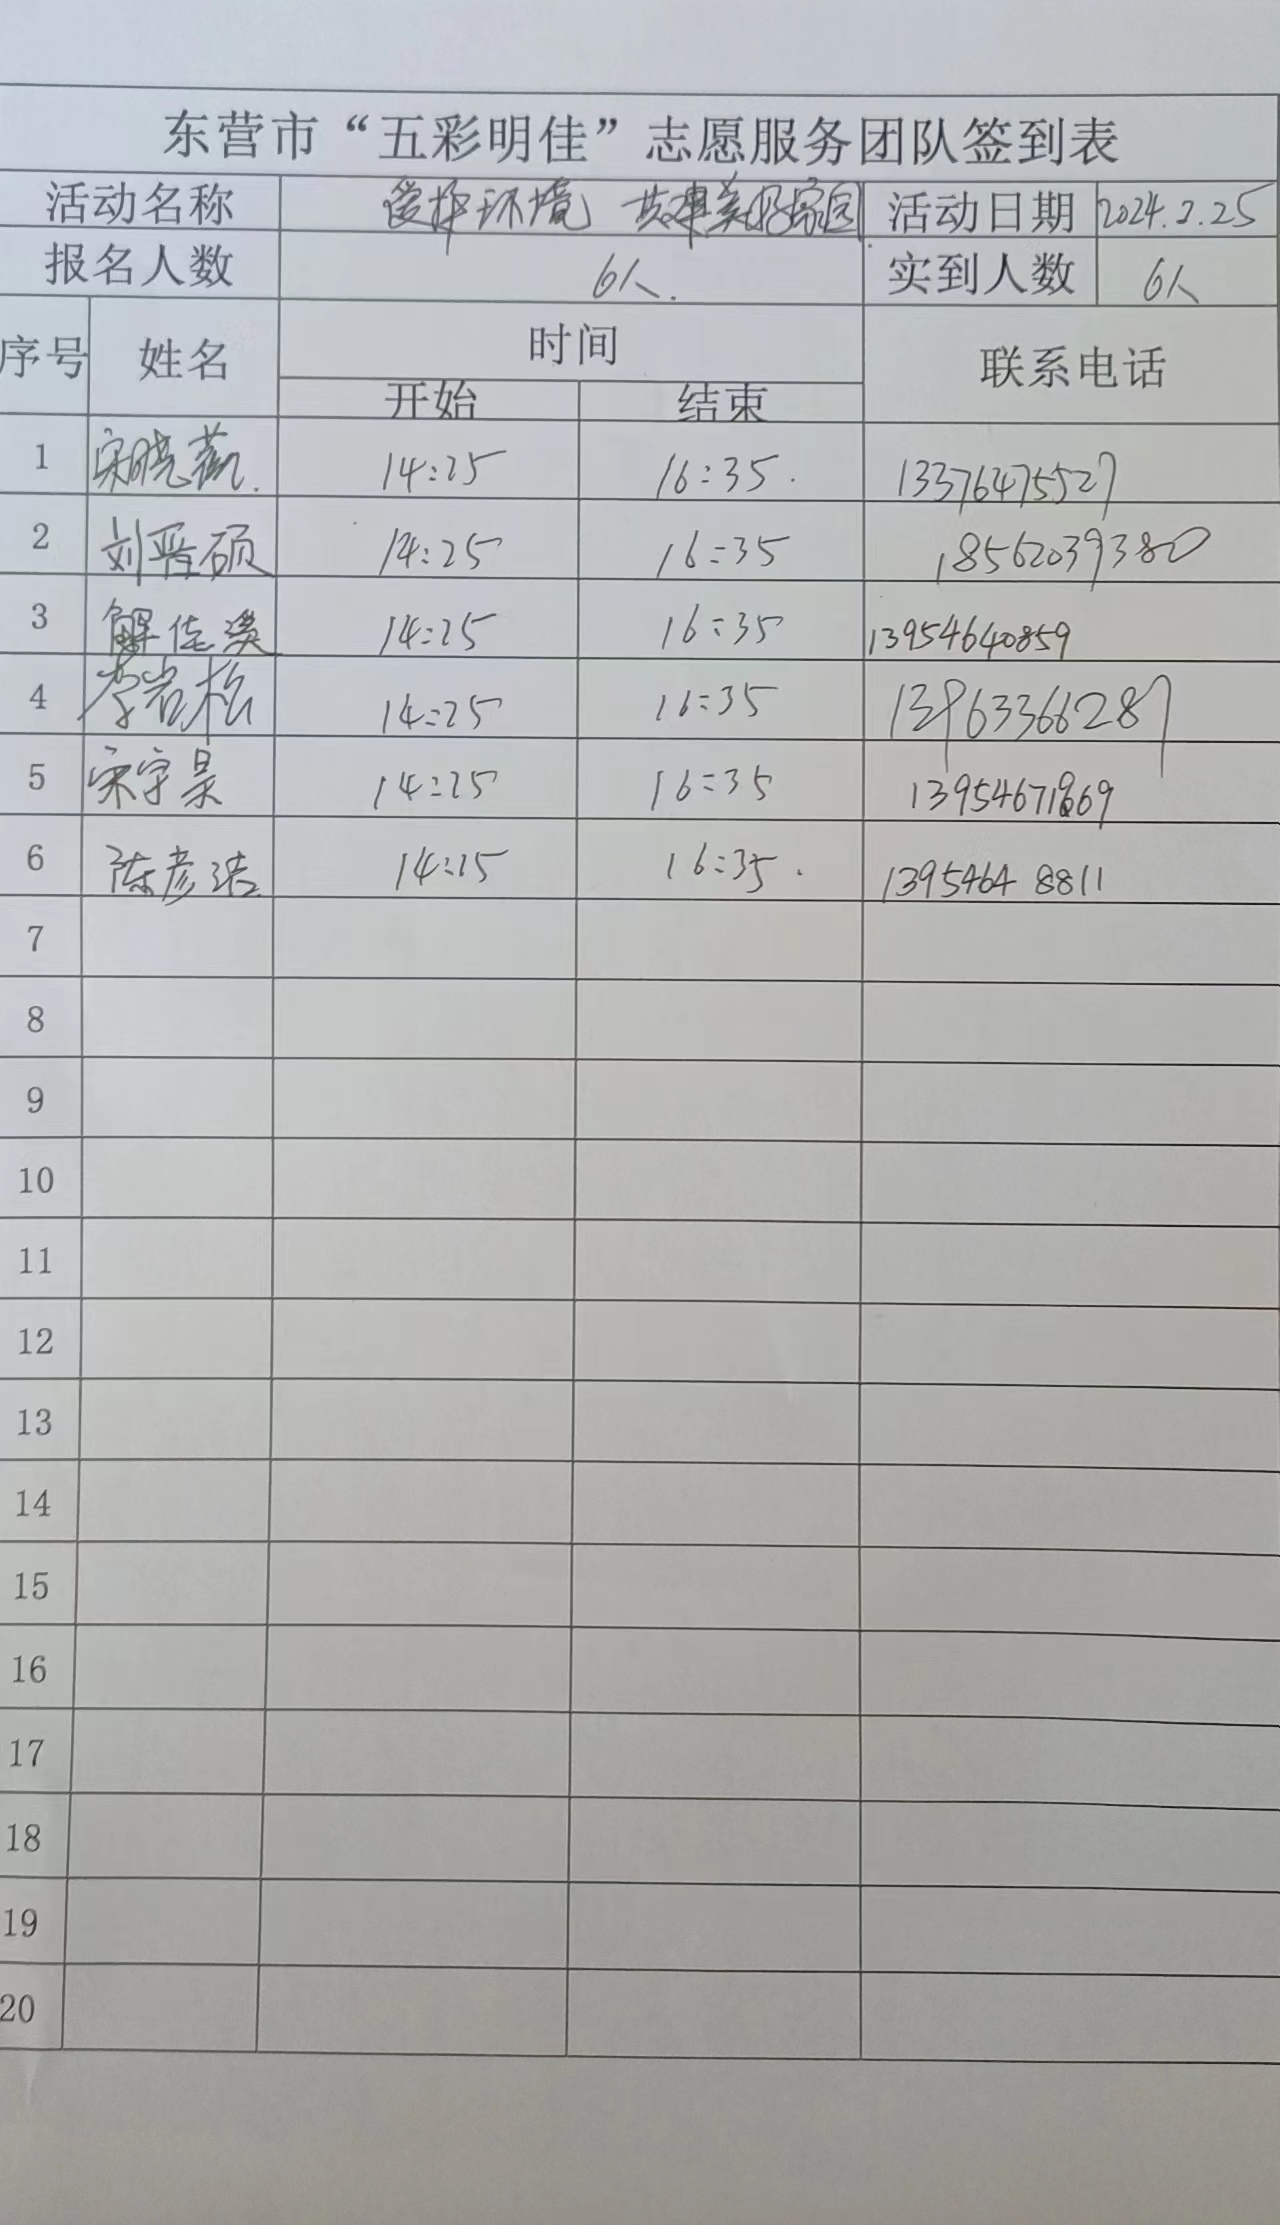 东营市“五彩明佳”志愿服务团队签到表
活动名称 爱护环境 共建美好家园 活动日期 2024.2.25
报名人数 6人. 实到人数 6人
序号 姓名 时间 联系电话
开始 结束
1 宋晓 14:25 16:35. 13376475527
2 刘晋硕 14:25 16:35 18562039380
3 解佳溪 14:25 16:35 13954640859
4 李岩松 14:25 16:35 13963366287
5 宋宇昊 14:25 16:35
6 陈彦洁 14:25 16:35. 1395464 8811
7
8
9
10
11
12
13
14
15
16
17
18
19
20